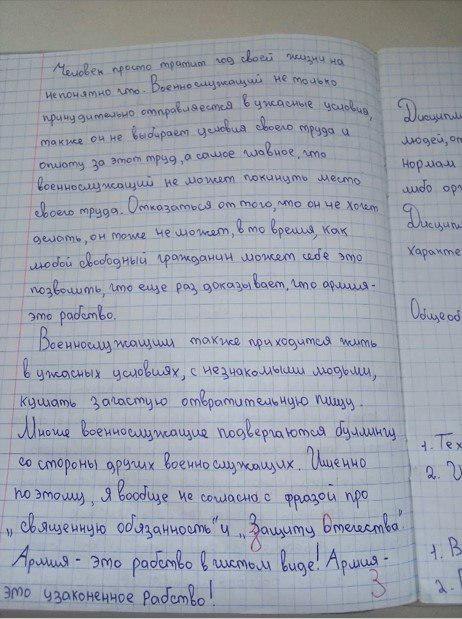 Человек просто тратит год своей жизни на
непонятно что. Военнослужащий не только
принудительно отправляется в ужасные условия,
также он не выбирает условия своего труда и
оплату за этот труд, а самое главное, что
военнослужащий не может покинуть место
своего труда. Отказаться от того, что он не хочет
делать, он тоже не может, в то время, как
любой свободный гражданин может себе это
позволить, что еще раз доказывает, что армия-
это рабство.
Военнослужащим также приходится жить
в ужасных условиях, с незнакомыми людьми,
кушать зачастую отвратительную пищу.
Многие военнослужащие подвергаются буллингу
со стороны других военнослужащих. Именно
поэтому, я вообще не согласна с фразой про
„священную обязанность" и „Защиту Отечества"
Армия - это рабство в чистом виде! Армия -
это узаконенное рабство!
3
Дисципли
людей, от
нормам
либо орг
Дисципли
характе
Общеоб
1. Тех
2. И
1. В
2.